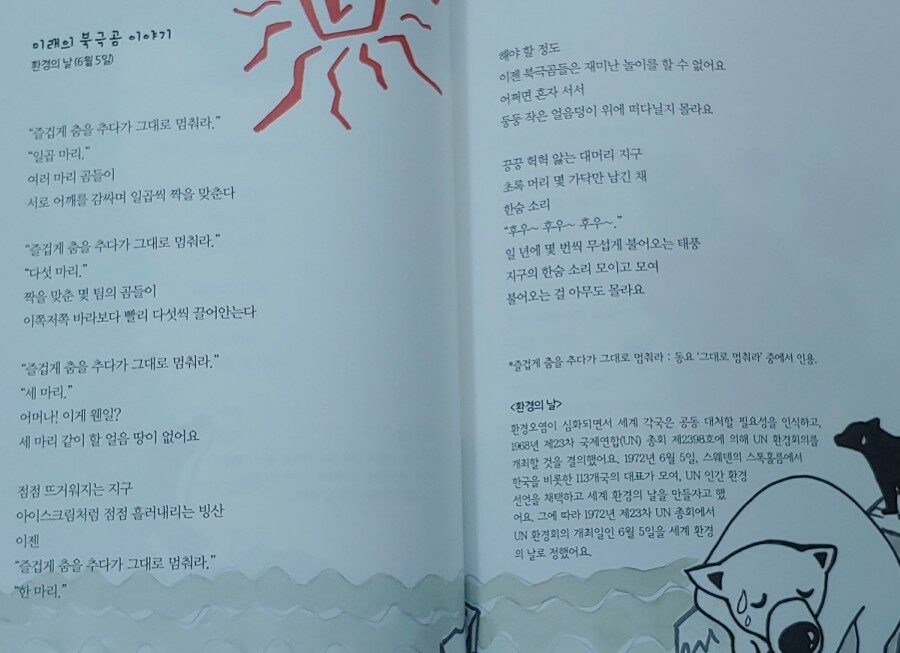 미래의 북극곰 이야기
환경의 날(6월 5일)
“즐겁게 춤을 추다가 그대로 멈춰라.”
“일곱 마리.”
여러 마리 곰들이
서로 어깨를 감싸며 일곱씩 짝을 맞춘다
“즐겁게 춤을 추다가 그대로 멈춰라.”
“다섯 마리.”
짝을 맞춘 몇 팀의 곰들이
이쪽저쪽 바라보다 빨리 다섯씩 끌어안는다
“즐겁게 춤을 추다가 그대로 멈춰라.”
“세 마리.”
어머나! 이게 웬일?
세 마리 같이 할 얼음 땅이 없어요
점점 뜨거워지는 지구
아이스크림처럼 점점 흘러내리는 빙산
이젠
“즐겁게 춤을 추다가 그대로 멈춰라.”
“한 마리.”
해야 할 정도
이젠 북극곰들은 재미난 놀이를 할 수 없어요
어쩌면 혼자 서서
둥둥 작은 얼음덩이 위에 떠다닐지 몰라요
끙끙 헉헉 앓는 대머리 지구
초록 머리 몇 가닥만 남긴 채
한숨 소리
“후우~ 후우~ 후우~.”
일 년에 몇 번씩 무섭게 불어오는 태풍
지구의 한숨 소리 모이고 모여
불어오는 걸 아무도 몰라요
*즐겁게 춤을 추다가 그대로 멈춰라 : 동요 ‘그대로 멈춰라’ 중에서 인용.
<환경의 날>
환경오염이 심화되면서 세계 각국은 공동 대처할 필요성을 인식하고,
1968년 제23차 국제연합(UN) 총회 제2398호에 의해 UN 환경회의를
개최할 것을 결의했어요. 1972년 6월 5일, 스웨덴의 스톡홀름에서
한국을 비롯한 113개국의 대표가 모여, UN 인간 환경
선언을 채택하고 세계 환경의 날을 만들자고 했
어요. 그에 따라 1972년 제23차 UN 총회에서
UN 환경회의 개최일인 6월 5일을 세계 환경
의 날로 정했어요.